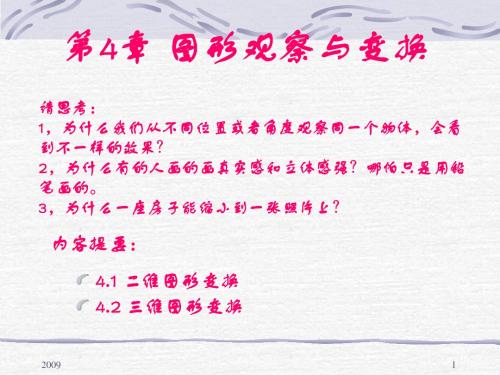 第4章 图形观察与变换
请思考：
1，为什么我们从不同位置或者角度观察同一个物体，会看
到不一样的效果？
2，为什么有的人画的画真实感和立体感强？哪怕只是用铅
笔画的。
3，为什么一座房子能缩小到一张照片上？
内容提要：
4.1 二维图形变换
4.2 三维图形变换
2009
1